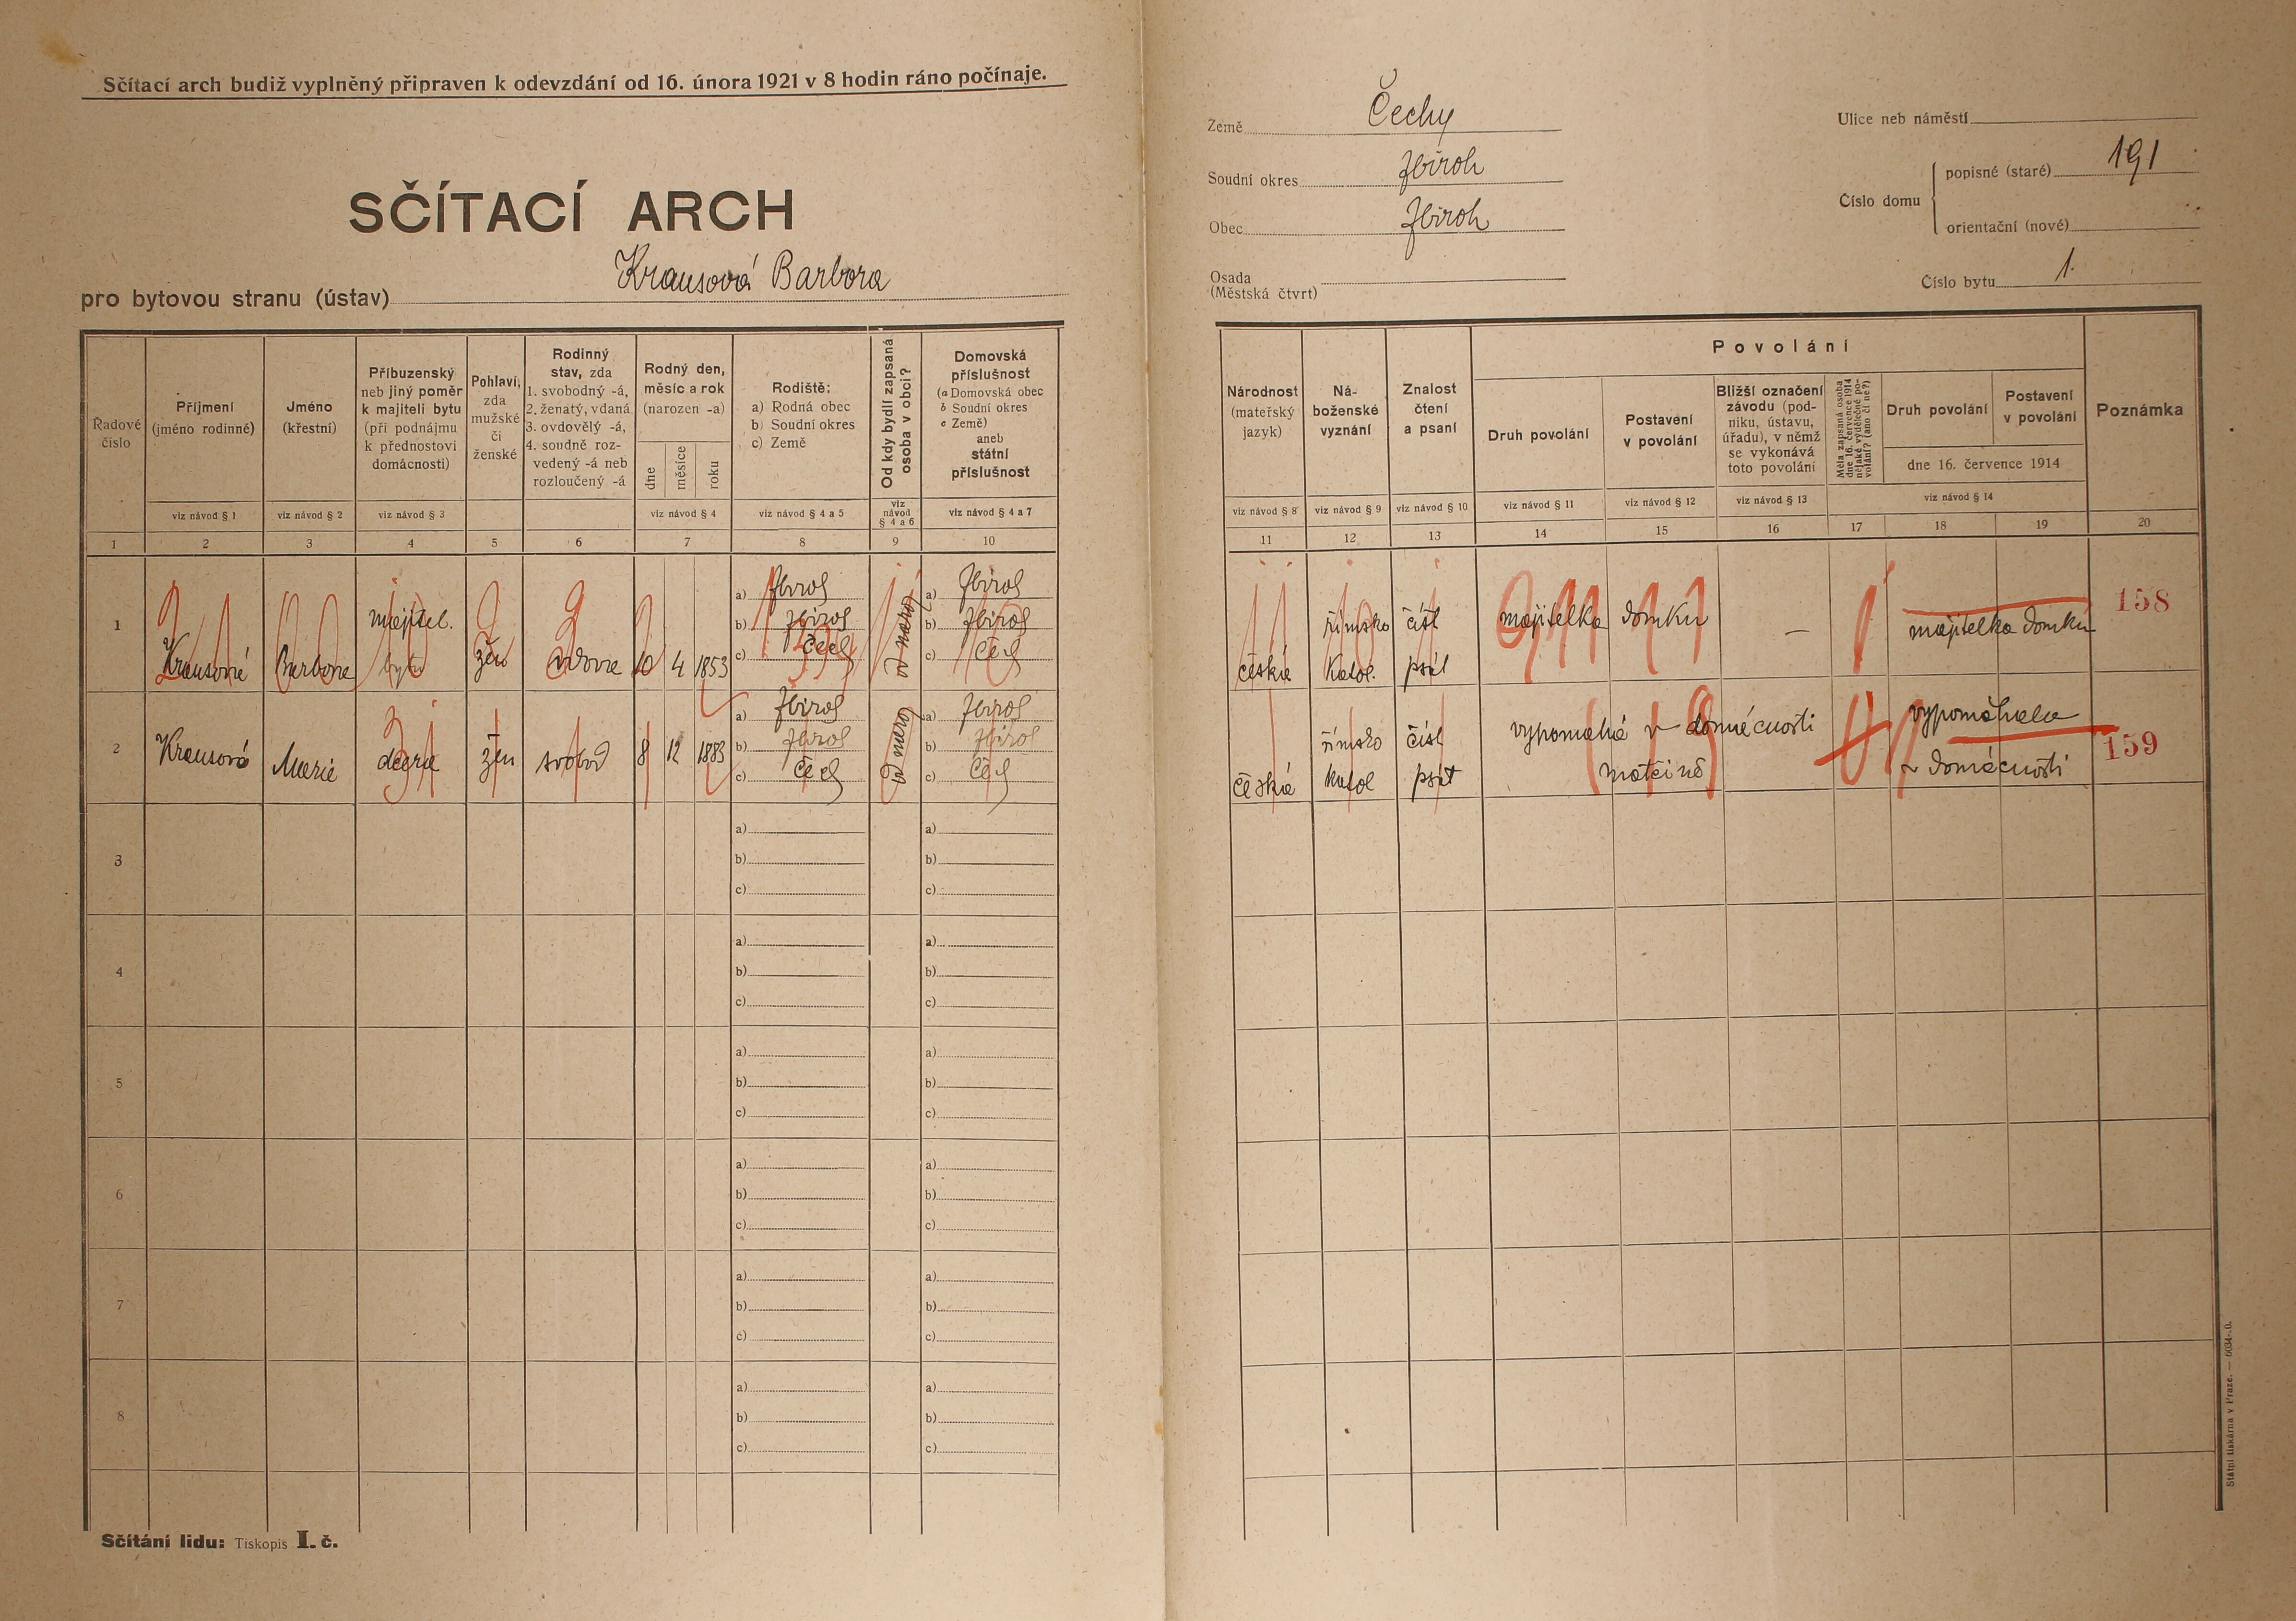 Sčítací arch budiž vyplněný připraven k odevzdání od 16. února 1921 v 8 hodin ráno počínaje.
SČÍTACÍ ARCH
pro bytovou stranu (ústav) Krausová Barbora
Země Čechy
Soudní okres Zbiroh
Obec Zbiroh
Osada
(Městská čtvrt)
Ulice neb náměstí
Číslo domu
popisné (staré) 191
orientační (nové)
Číslo bytu 1.
Řadové
číslo
Příjmení
(jméno rodinné)
viz návod § 1
Jméno
(křestní)
viz návod § 2
Příbuzenský
neb jiný poměr
k majiteli bytu
(při podnájmu
k přednostovi
domácnosti)
viz návod § 3
Pohlaví,
zda
mužské
či
ženské
Rodinný
stav, zda
1. svobodný -á,
2. ženatý, vdaná
3. ovdovělý -á,
4. soudně roz-
vedený -á neb
rozloučený -á
Rodný den,
měsíc a rok
(narozen -a)
dne
měsíce
roku
viz návod § 4
Rodiště:
a) Rodná obec
b) Soudní okres
c) Země
viz návod § 4 a 5
Od kdy bydlí zapsaná
osoba v obci?
viz
návod
§ 4 a 6
Domovská
příslušnost
(a Domovská obec
b Soudní okres
c Země)
aneb
státní
příslušnost
viz návod § 4 a 7
Národnost
(mateřský
jazyk)
viz návod § 8
Ná-
boženské
vyznání
viz návod § 9
Znalost
čtení
a psaní
viz návod § 10
Povolání
Druh povolání
viz návod § 11
Postavení
v povolání
viz návod § 12
Bližší označení
závodu (pod-
niku, ústavu,
úřadu), v němž
se vykonává
toto povolání
viz návod § 13
Měla zapsaná osoba
dne 16. července 1914
nějaké výdělečné po-
volání? (ano či ne?)
Druh povolání
Postavení
v povolání
dne 16. července 1914
viz návod § 14
Poznámka
1 2 3 4 5 6 7 8 9 10
11 12 13 14 15 16 17 18 19 20
1
Krausová
Barbora
majitel.
bytu
žen
vdova
10 4 1853
a) Zbiroh
b) Zbiroh
c) Čech
od naroz
a) Zbiroh
b) Zbiroh
c) Čech
česká
římsko
katol.
číst
psát
majitelka domku
—
majitelka domku
158
2
Krausová
Marie
dcera
žen
svobod
8 12 1883
a) Zbiroh
b) Zbiroh
c) Čech
od naroz
a) Zbiroh
b) Zbiroh
c) Čech
česká
římsko
katol
číst
psát
vypomáhá v domácnosti
matčině
vypomáhala
v domácnosti
159
3
a)
b)
c)
a)
b)
c)
4
a)
b)
c)
a)
b)
c)
5
a)
b)
c)
a)
b)
c)
6
a)
b)
c)
a)
b)
c)
7
a)
b)
c)
a)
b)
c)
8
a)
b)
c)
a)
b)
c)
Sčítání lidu: Tiskopis I. č.
Státní tiskárna v Praze. — 6034-.0.